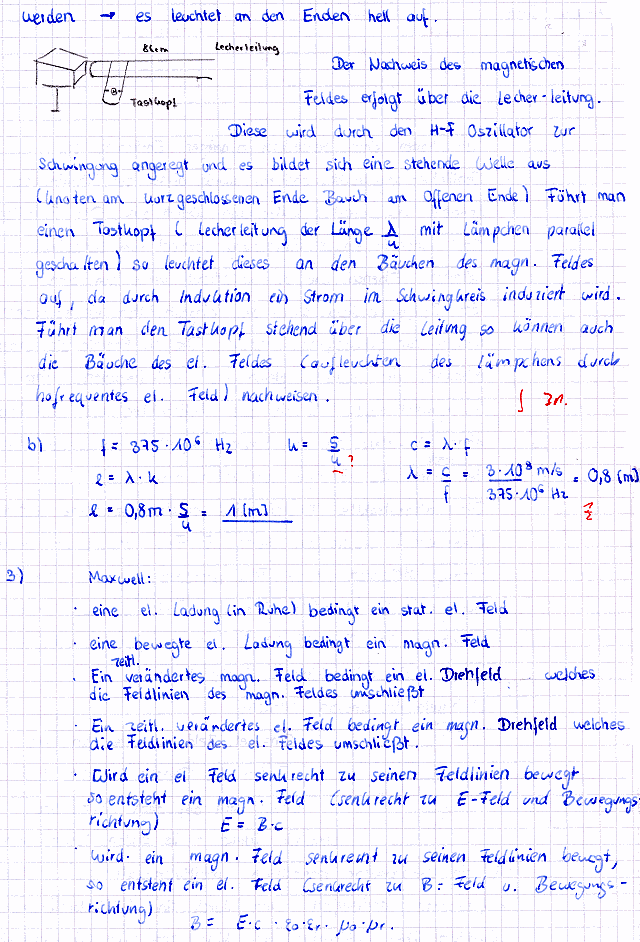 werden → es leuchtet an den Enden hell auf.
84cm Lecherleitung
Der Nachweis des magnetischen
B
Tastkopf
Feldes erfolgt über die Lecher-leitung.
Diese wird durch den H-F Oszillator zur
Schwingung angeregt und es bildet sich eine stehende Welle aus
(Knoten am kurzgeschlossenen Ende Bauch am Offenen Ende) Führt man
einen Tastkopf (Lecherleitung der Länge λ/4 mit Lämpchen parallel
geschalten) so leuchtet dieses an den Bäuchen des magn. Feldes
auf, da durch Induktion ein Strom im Schwingkreis induziert wird.
Führt man den Tastkopf stehend über die Leitung so können auch
die Bäuche des el. Feldes (aufleuchten des Lämpchens durch
hofrequentes el. Feld) nachweisen.
b) f = 375·10⁶ Hz k = 5/4 ? c = λ·f
l = λ·k λ = c/f = 3·10⁸ m/s / 375·10⁶ Hz = 0,8 [m]
l = 0,8m · 5/4 = 1 [m]
3) Maxwell:
· eine el. Ladung (in Ruhe) bedingt ein stat. el. Feld
· eine bewegte el. Ladung bedingt ein magn. Feld
· Ein zeitl. verändertes magn. Feld bedingt ein el. Drehfeld welches
die Feldlinien des magn. Feldes umschließt
· Ein zeitl. verändertes el. Feld bedingt ein magn. Drehfeld welches
die Feldlinien des el. Feldes umschließt.
· Wird ein el Feld senkrecht zu seinen Feldlinien bewegt
so entsteht ein magn. Feld (senkrecht zu E-Feld und Bewegungs-
richtung) E = B·c
· wird ein magn. Feld senkrecht zu seinen Feldlinien bewegt,
so entsteht ein el. Feld (senkrecht zu B-Feld u. Bewegungs-
richtung)
B = E·c · ε₀·εr · μ₀·μr.